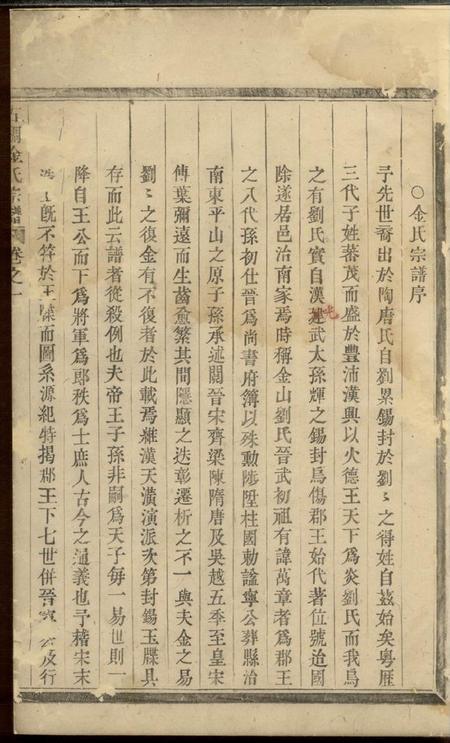 ○金氏宗譜序
予先世裔出於陶唐氏自劉累錫封於劉〻之得姓自茲始矣粵歷
三代子姓蕃茂而盛於豐沛漢興以火德王天下為炎劉氏而我烏
之有劉氏實自漢建武太孫輝之錫封烏傷郡王始代著位號迨國
光
除遂居邑治南家焉時稱金山劉氏晉武初祖有諱萬章者為郡王
之八代孫初仕晉為尚書府簿以殊勲陟陞柱國勅諡寧公葬縣治
南東平山之原子孫承述閥晉宋齊梁陳隋唐及吳越五季至皇宋
傳葉彌遠而生齒愈繁其間隱顯之迭彰遷析之不一與夫金之易
劉〻之復金有不復者於此載焉雖漢天潢演派次第封錫玉牒具
存而此云譜者從殺例也夫帝王子孫非嗣為天子每一易世則一
降自王公而下為將軍為郎秩為士庶人古今之通義也予稽宋末
既不符於玉牒而圖系源紀特揭郡王下七世併晉 及行
金氏宗譜 卷之一